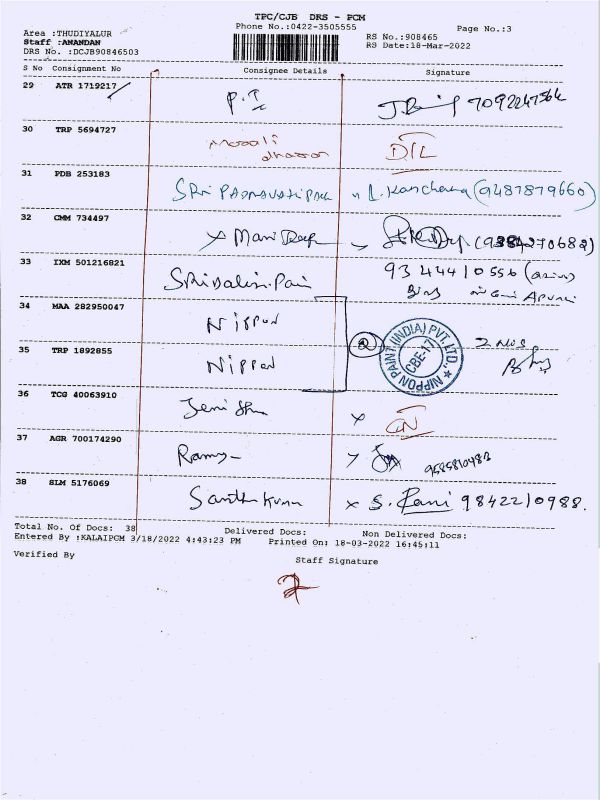 TPC/CJB DRS - PCM
Phone No.:0422-3505555
Page No.:3
Area :THUDIYALUR
Staff :ANANDAN
DRS No. :DCJB90846503
RS No.:908465
RS Date:18-Mar-2022
S No Consignment No Consignee Details Signature
29 ATR 1719217 P.T 7092247564
30 TRP 5694727 DIL
31 PDB 253183 SRI PADMAVATI L. Kanchana (9487879660)
32 CMM 734497 x Mani
33 IXM 501216821 9344410556
34 MAA 282950047 Nippon
2
NIPPON PAINT (INDIA) PVT. LTD.,
CBE-17
2 Nos
35 TRP 1892855 Nippon
36 TCG 40063910 x
37 AGR 700174290 Ramy 9585810483
38 SLM 5176069 Santh Kumar x S. Rani 9842210988.
Total No. Of Docs: 38 Delivered Docs: Non Delivered Docs:
Entered By :KALAIPCM 3/18/2022 4:43:23 PM Printed On: 18-03-2022 16:45:11
Verified By
Staff Signature